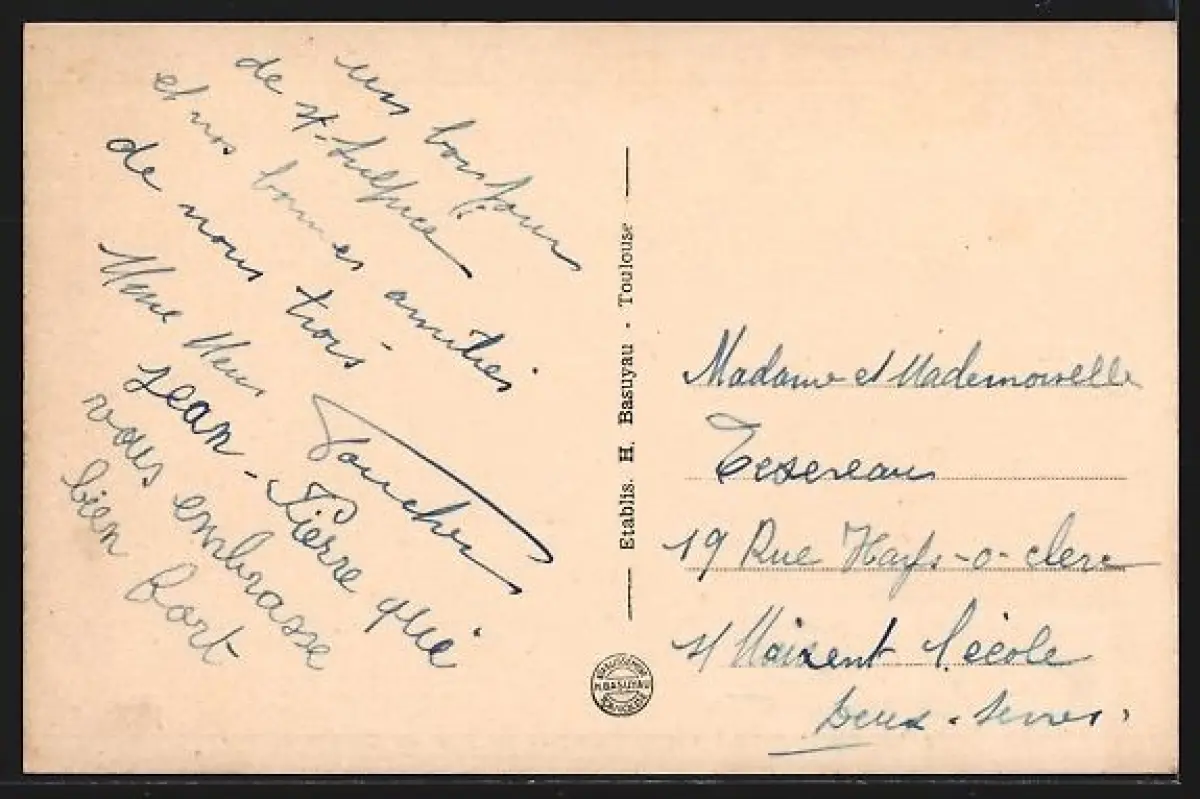 un bonjour
de St-Sulpice
et nos bonnes amitiés
de nous trois
Mme Mr
Jean-Pierre qui
vous embrasse
bien fort
Etablis. H. Basuyau - Toulouse
H. BASUYAU
Madame et Mademoiselle
19 Rue
St Maixent l'école
Deux-Sèvres.